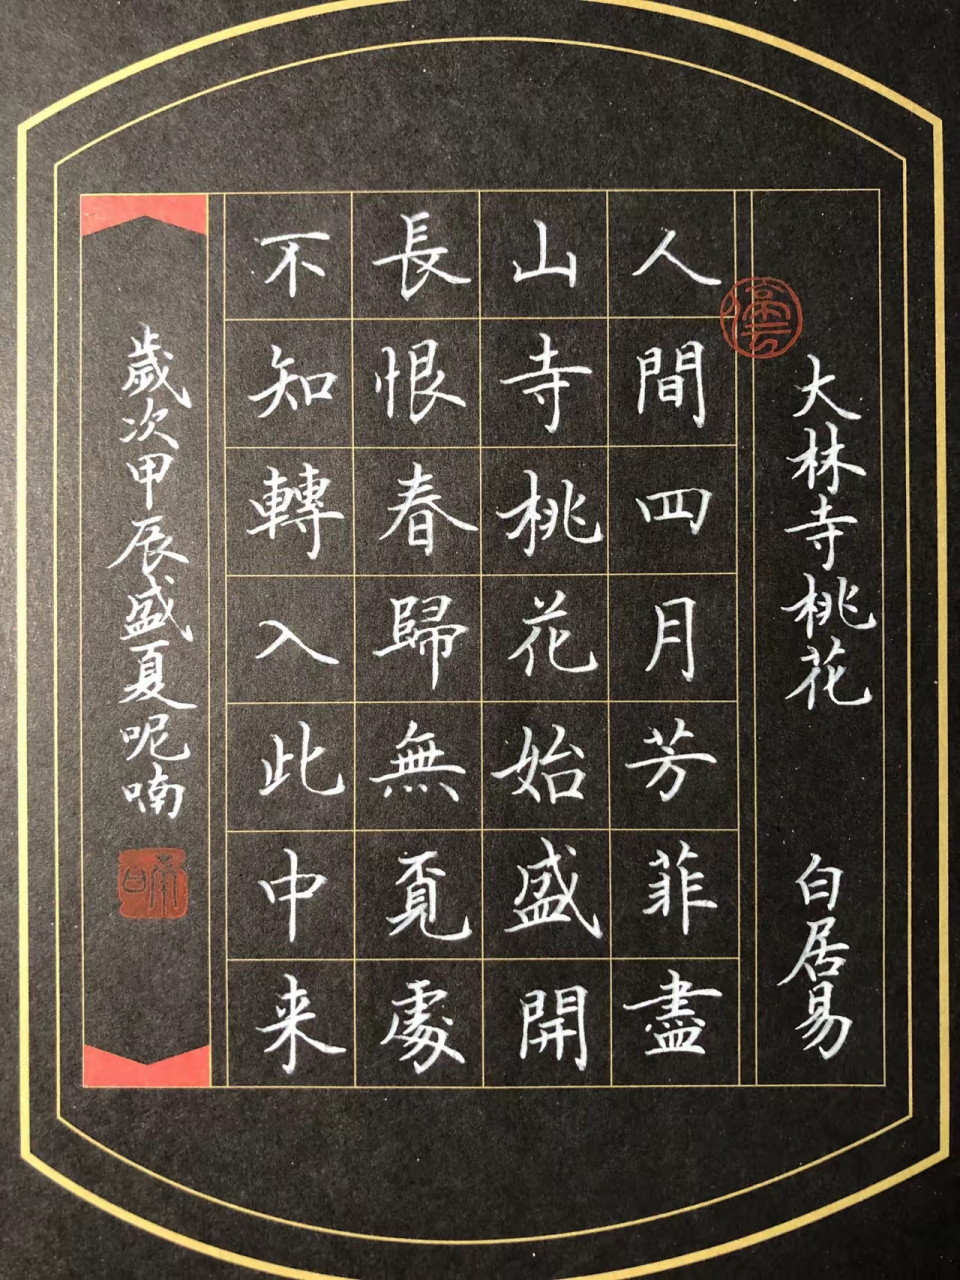 大林寺桃花 白居易
人間四月芳菲盡
山寺桃花始盛開
長恨春歸無覓處
不知轉入此中来
歲次甲辰盛夏呢喃